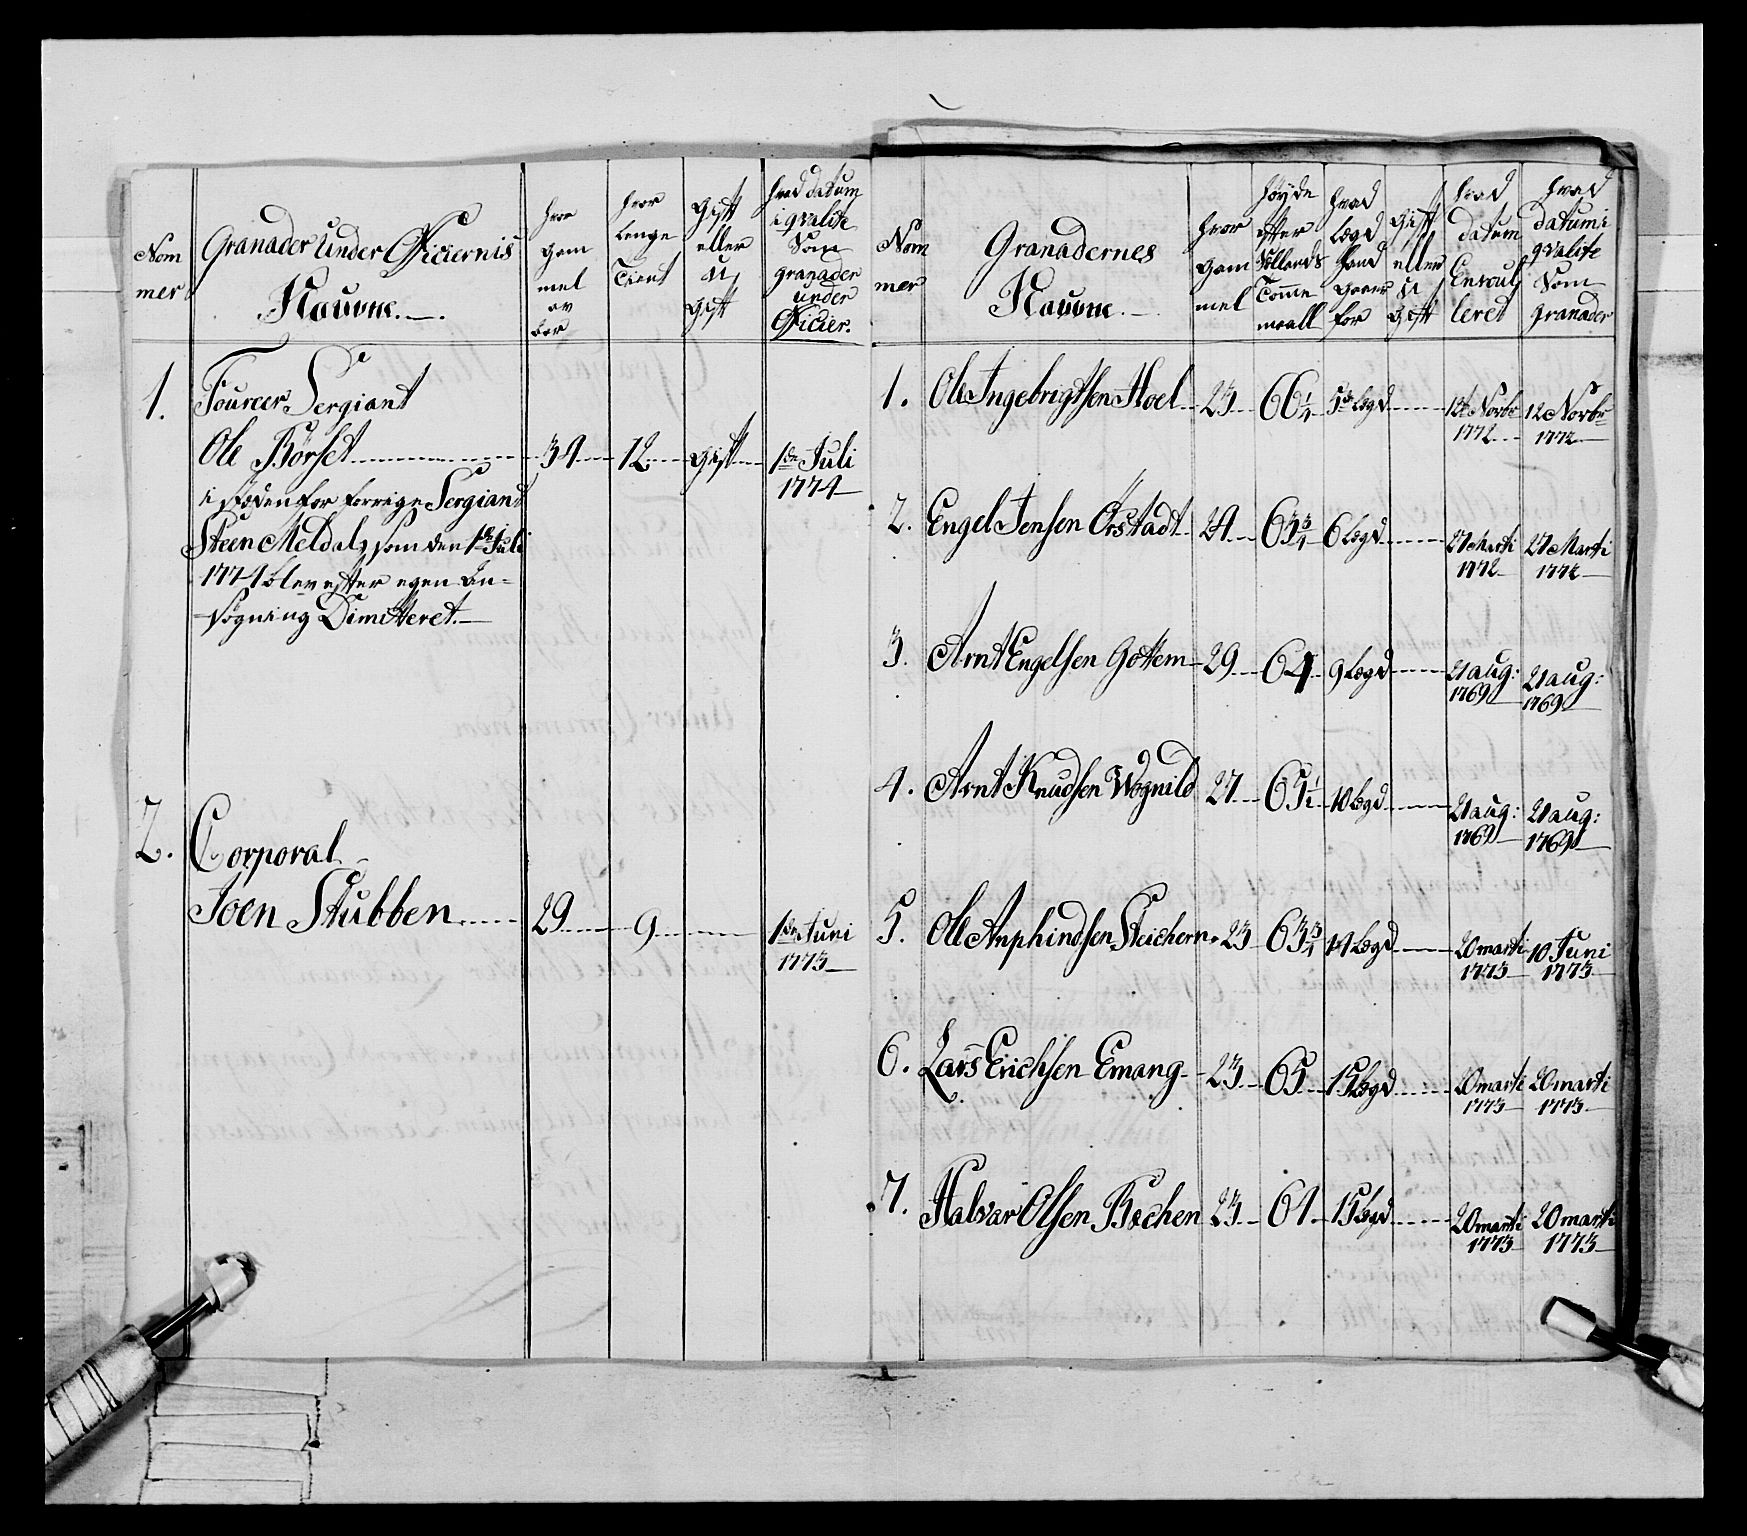 Nom
mer
Granader Under Officiernis
Nauvne.
hvor
gam
mel
av
hvor
lenge
Tient
Gift
eller
u
gift
hvad datum
i qvalite
Som
granader
under
Officier.
1. Fourer Sergiant
Ole Börset 34 12 gift 1de Juli
1774
i stæden for forrige Sergiant
Steen Meldal, som den 1de Juli
1774 blev efter egen An-
søgning Dimitteret.
2. Corporal
Joen Stubben 29 9 1de Juni
1773
Nom
mer
Granadernes
Nauvne.
hvor
gam
mel
höyde
efter
Sollands
Tomme
maall
hvad
Legd
hand
giører
for
gift
eller
u
gift
hvad
datum
Enroul
leret
hvad
datum i
qvalite
Som
granader
1. Ole Ingebrigtsen Hoel 23 66 1/4 5te Legd 12 Novbr 12 Novbr
1772 1772
2. Engel Jensen Örstadt 24 63 3/4 6 Legd 27 Marti 27 Marti
1772 1772
3. Arnt Engelsen Gottem 29 64 9 Legd 21 aug: 21 aug:
1769 1769
4. Arnt Knudsen Wognild 27 65 1/2 10 Legd 21 aug: 21 aug:
1769 1769
5. Ole Anphindsen Steichern 23 63 3/4 14 Legd 20 marti 10 Juni
1773 1773
6. Lars Erichsen Emang 23 65 15 Legd 20 marti 20 marti
1773 1773
7. Halvar Olsen Bechen 23 61 15 Legd 20 marti 20 marti
1773 1773